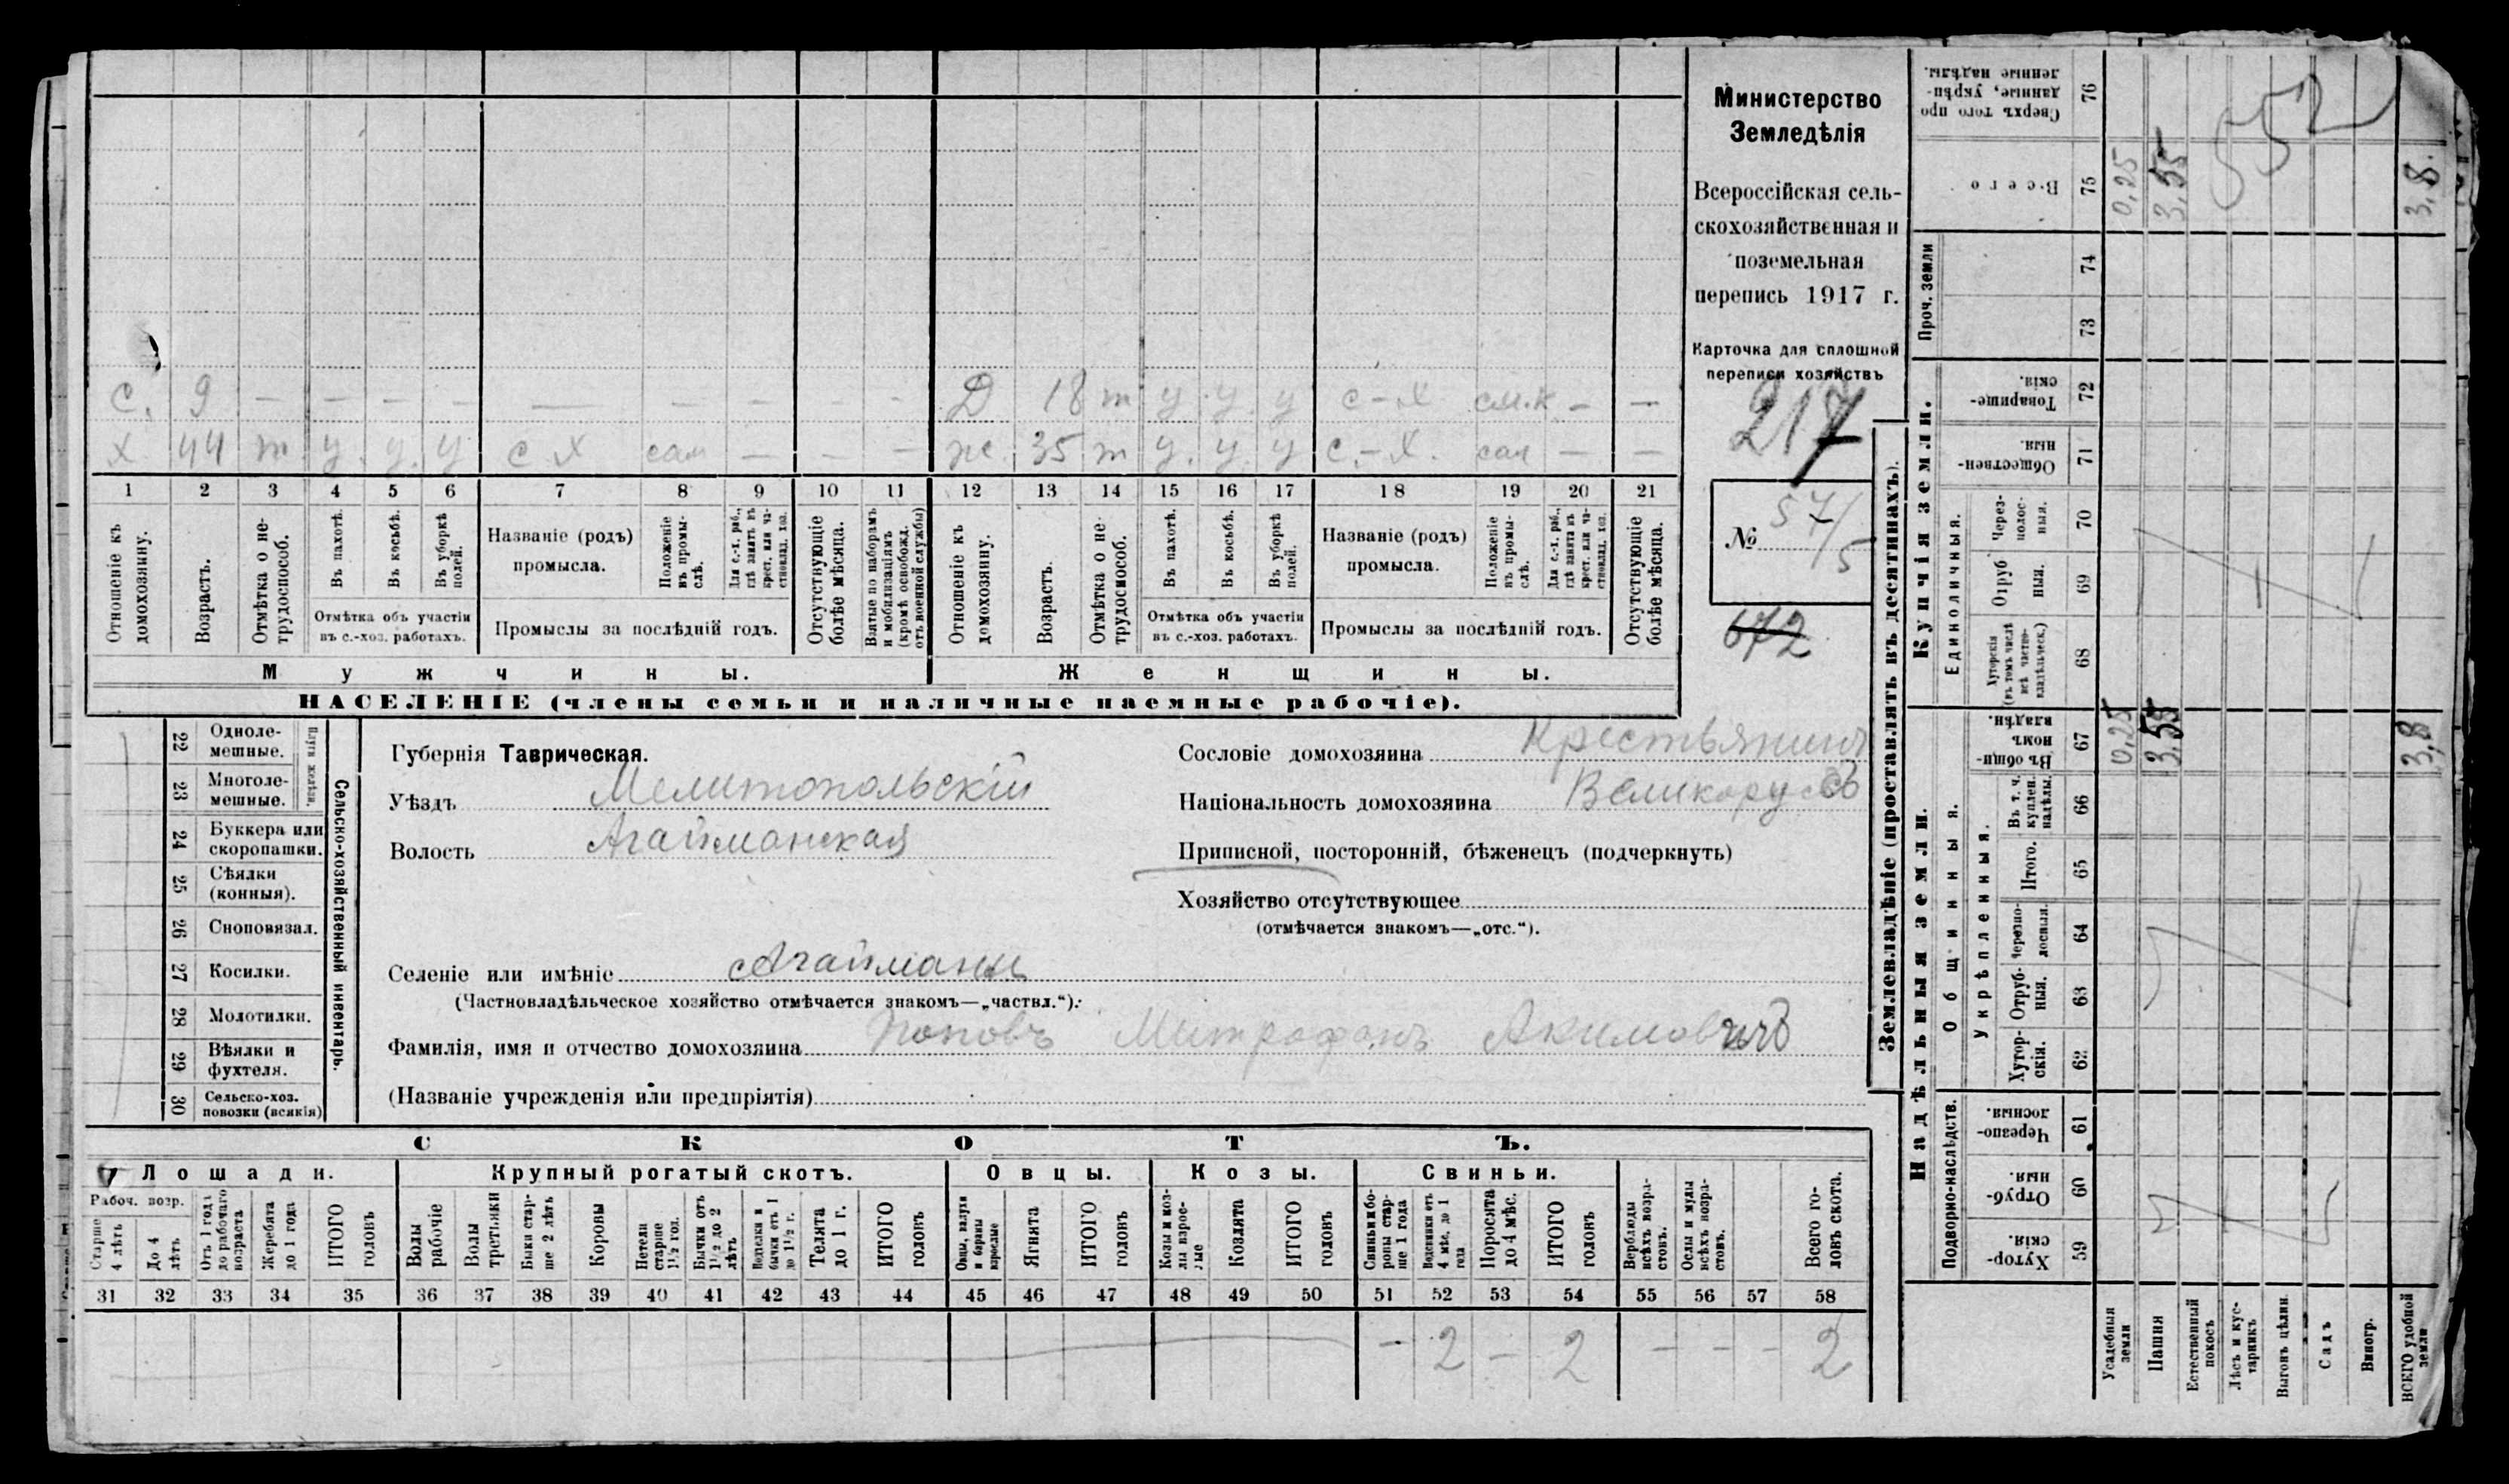 Министерство
Земледѣлія
Всероссійская сель-
скохозяйственная и
поземельная
перепись 1917 г.
Карточка для сплошной
переписи хозяйствъ
217
№ 57/5
672
с. 9 — — — — — — — — — Д 18 т у. у. у с-х см.к — —
х 44 т у. у. у с х сам — — — ж. 35 т у. у. у с.-х. сам — —
1 2 3 4 5 6 7 8 9 10 11 12 13 14 15 16 17 18 19 20 21
Отношеніе къ домохозяину.
Возрастъ.
Отмѣтка о не-трудоспособ.
Въ пахотѣ.
Въ косьбѣ.
Въ уборкѣ полей.
Отмѣтка объ участіи
въ с.-хоз. работахъ.
Названіе (родъ)
промысла.
Положеніе въ промы-слѣ.
Для с.-х. раб., гдѣ занятъ въ крест. или ча-стновлад. хоз.
Промыслы за послѣдній годъ.
Отсутствующіе болѣе мѣсяца.
Взятые по наборамъ и мобилизаціямъ (кромѣ освобожд. отъ военной службы)
Отношеніе къ домохозяину.
Возрастъ.
Отмѣтка о не-трудоспособ.
Въ пахотѣ.
Въ косьбѣ.
Въ уборкѣ полей.
Отмѣтка объ участіи
въ с.-хоз. работахъ.
Названіе (родъ)
промысла.
Положеніе въ промы-слѣ.
Для с.-х. раб., гдѣ занята въ крест. или ча-стновлад. хоз.
Промыслы за послѣдній годъ.
Отсутствующіе болѣе мѣсяца.
Мужчины.
Женщины.
НАСЕЛЕНІЕ (члены семьи и наличные наемные рабочіе).
22 Одноле-мешные.
23 Многоле-мешные.
Плуги желѣзн.
24 Буккера или скоропашки.
25 Сѣялки (конныя).
26 Сноповязал.
27 Косилки.
28 Молотилки.
29 Вѣялки и фухтеля.
30 Сельско-хоз. повозки (всякія)
Сельско-хозяйственный инвентарь.
Губернія Таврическая.
Уѣздъ Мелитопольскій
Волость Агайманская
Селеніе или имѣніе Агайманы
(Частновладѣльческое хозяйство отмѣчается знакомъ—„частвл.“).
Фамилія, имя и отчество домохозяина Поповъ Митрофанъ Акимовичъ
(Названіе учрежденія или предпріятія)
Сословіе домохозяина Крестьянинъ
Національность домохозяина Великорусъ
Приписной, посторонній, бѣженецъ (подчеркнуть)
Хозяйство отсутствующее
(отмѣчается знакомъ—„отс.“).
СКОТЪ.
Лошади.
Крупный рогатый скотъ.
Овцы.
Козы.
Свиньи.
Рабоч. возр.
Старше 4 лѣтъ
До 4 лѣтъ
Отъ 1 года до рабочаго возраста
Жеребята до 1 года
ИТОГО головъ
Волы рабочіе
Волы третьяки
Быки стар-ше 2 лѣтъ
Коровы
Нетели старше 1½ год.
Бычки отъ 1½ до 2 лѣтъ
Подтелки и бычки отъ 1 до 1½ г.
Телята до 1 г.
ИТОГО головъ
Овцы, валухи и бараны взрослые
Ягнята
ИТОГО головъ
Козы и коз-лы взрос-лые
Козлята
ИТОГО головъ
Свиньи и бо-ровы стар-ше 1 года
Подсвинки отъ 4 мѣс. до 1 года
Поросята до 4 мѣс.
ИТОГО головъ
Верблюды всѣхъ возра-стовъ.
Ослы и мулы всѣхъ возра-стовъ.
Всего го-ловъ скота.
31 32 33 34 35 36 37 38 39 40 41 42 43 44 45 46 47 48 49 50 51 52 53 54 55 56 57 58
— 2 — 2 — — — 2
Землевладѣніе (проставлять въ десятинахъ).
Надѣльныя земли.
Купчія земли.
Проч. земли
Подворно-наслѣдств.
Общинныя.
Укрѣпленныя.
Единоличныя.
Хутор-скія. 59
Отруб-ныя 60
Черезпо-лосныя. 61
Хутор-скія. 62
Отруб-ныя. 63
Черезпо-лосныя. 64
Итого. 65
Въ т. ч. куплен. надѣлы. 66
Въ общин-номъ владѣн. 67
Хуторскія (въ томъ числѣ всѣ частно-владѣльческ.) 68
Отруб ныя. 69
Через-полос-ныя. 70
Обществен-ныя. 71
Товарище-скія. 72
73
74
Всего 75
Сверхъ того про данные, укрѣп-ленные надѣлы. 76
Усадебныя земли 0,25 0,25
Пашня 3,55 3,55
Естественный покосъ
Лѣсъ и кус-тарникъ
Выгонъ цѣлин.
Садъ
Виногр.
ВСЕГО удобной земли 3,8 3,8.
552